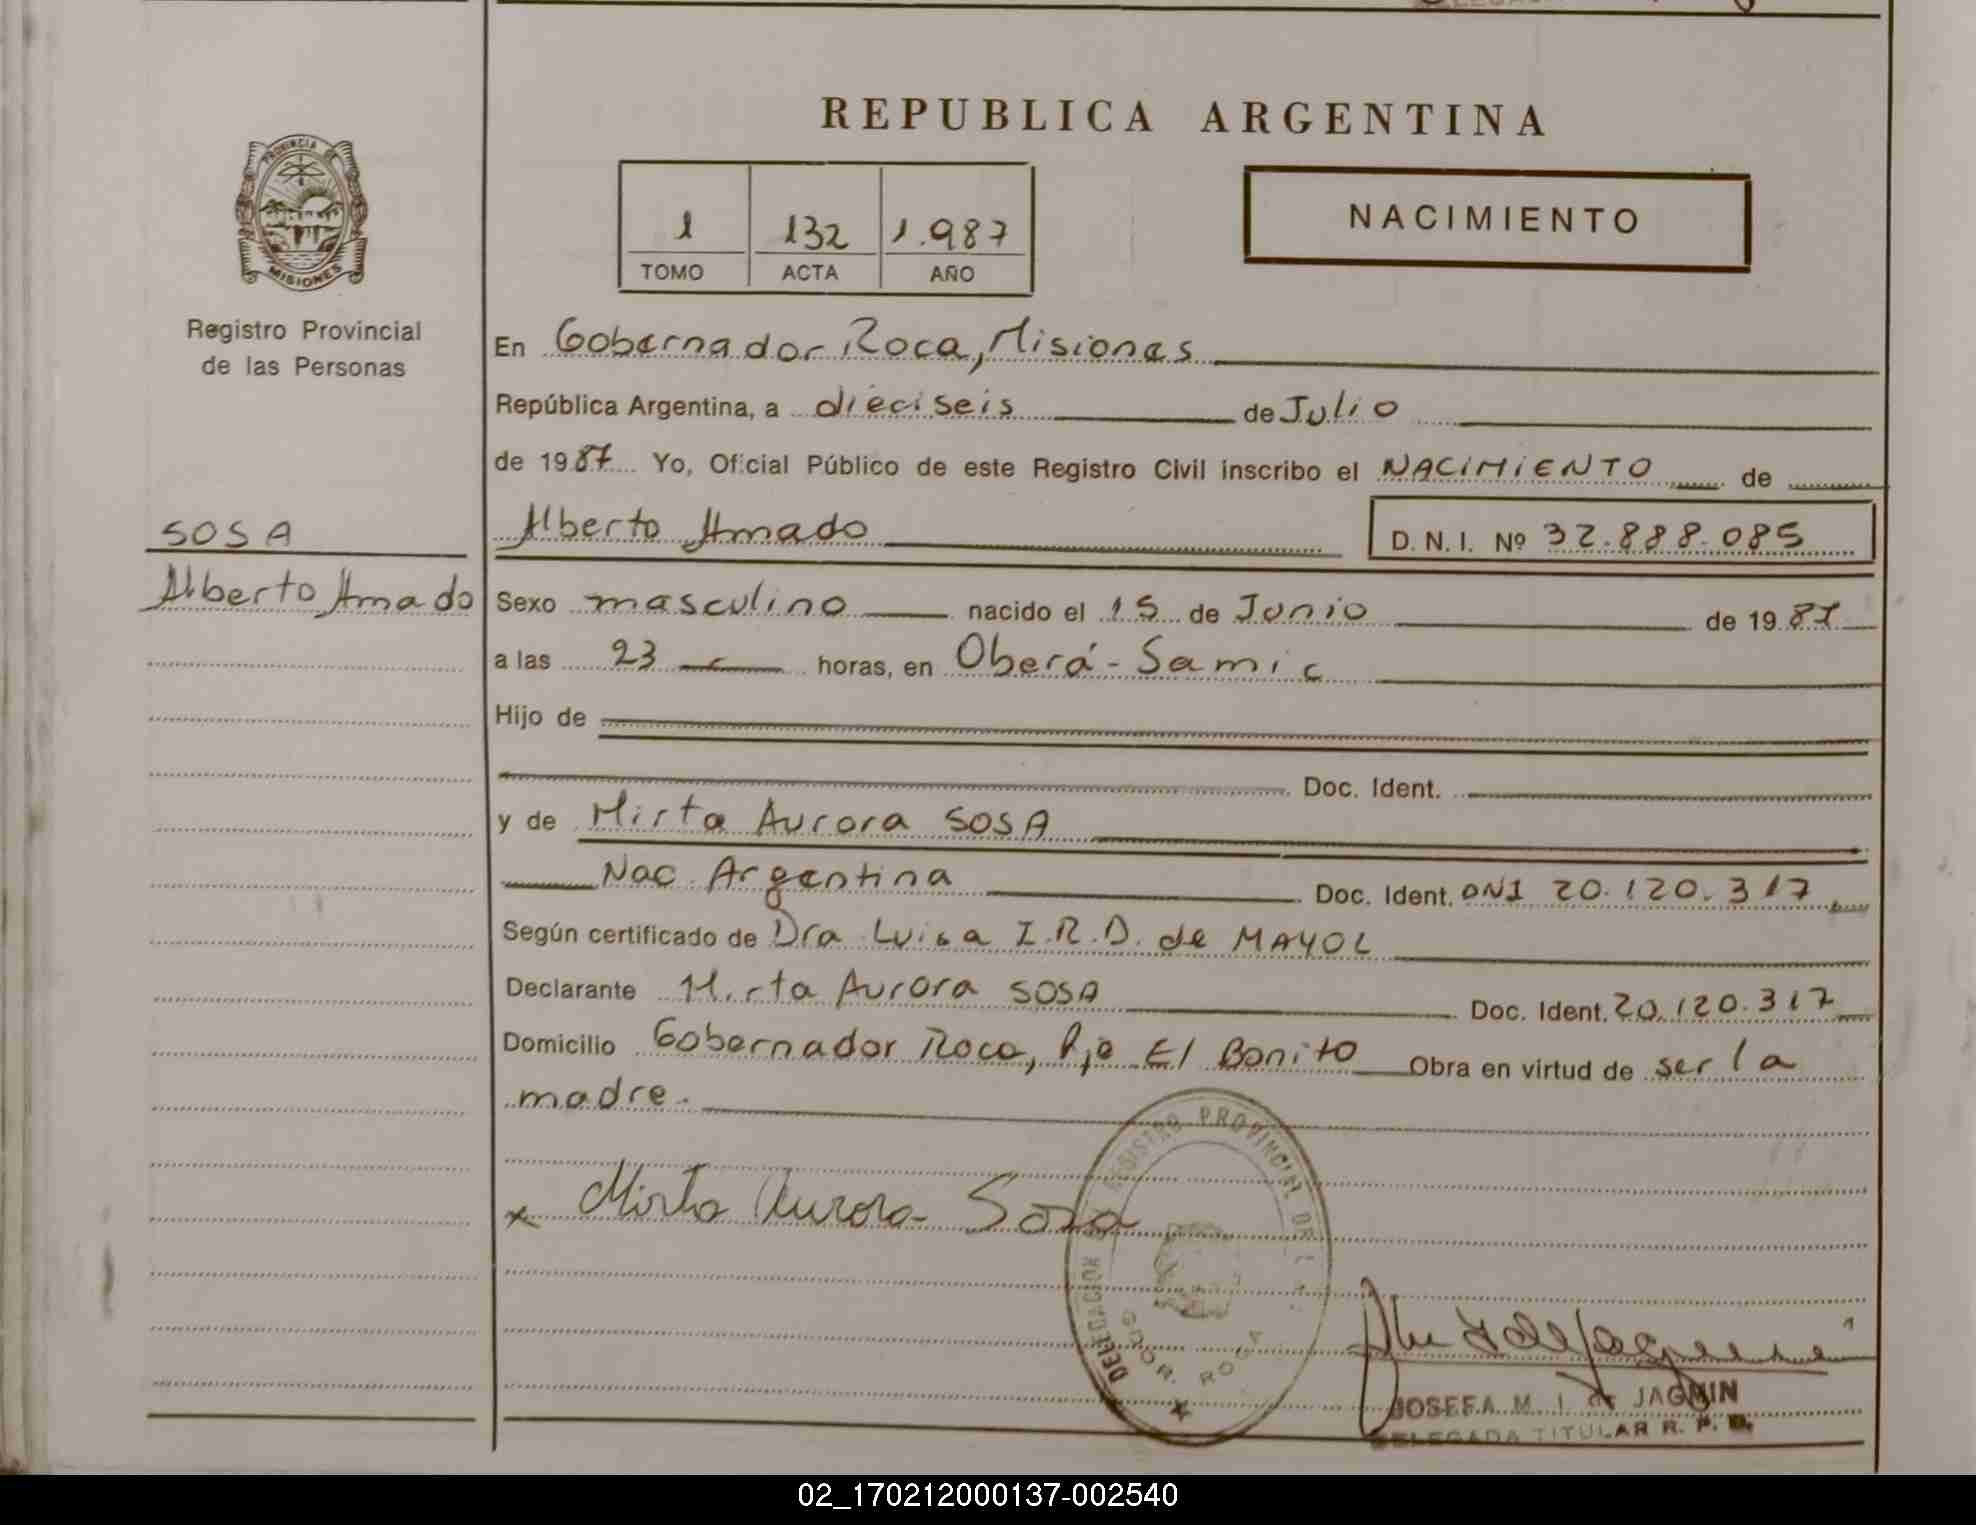 REPUBLICA ARGENTINA
PROVINCIA DE
MISIONES
Registro Provincial
de las Personas
1 132 1.987
TOMO ACTA AÑO
NACIMIENTO
En Gobernador Roca, Misiones
República Argentina, a dieciseis de Julio
de 1987 Yo, Oficial Público de este Registro Civil inscribo el NACIMIENTO de
SOSA
Alberto Amado
Alberto Amado D. N. I. Nº 32.888.085
Sexo masculino nacido el 15 de Junio de 1987
a las 23 horas, en Oberá - Samic
Hijo de
Doc. Ident.
y de Mirta Aurora SOSA
Nac. Argentina Doc. Ident. DNI 20.120.317
Según certificado de Dra Luisa I.R.D. de MAYOL
Declarante Mirta Aurora SOSA Doc. Ident. 20.120.317
Domicilio Gobernador Roca, Pje El Bonito Obra en virtud de ser la
madre.
x Mirta Aurora Sosa
DELEGACION REGISTRO PROVINCIAL DE
GDOR. ROCA
JOSEFA M. I. de JAGMIN
DELEGADA TITULAR R. P.
02_170212000137-002540